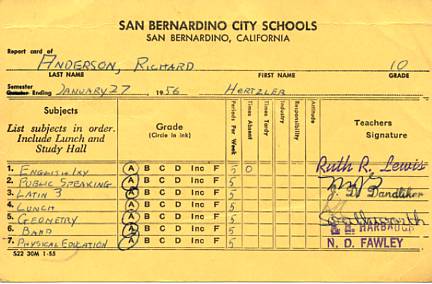 SAN BERNARDINO CITY SCHOOLS
SAN BERNARDINO, CALIFORNIA
Report card of
ANDERSON, RICHARD 10
LAST NAME FIRST NAME GRADE
Semester
Quarter Ending JANUARY 27 1956 HERTZLER
Subjects
List subjects in order.
Include Lunch and
Study Hall
Grade
(Circle in ink)
Periods Per Week
Times Absent
Times Tardy
Industry
Responsibility
Attitude
Teachers
Signature
1. ENGLISH IXY A B C D Inc F 5 0 Ruth R. Lewis
2. PUBLIC SPEAKING A B C D Inc F 5 Dandliker
3. LATIN 3 A B C D Inc F 5
4. LUNCH A B C D Inc F 5
5. GEOMETRY A B C D Inc F 5 Southworth
6. BAND A B C D Inc F 5 HARBAUGH
7. PHYSICAL EDUCATION A B C D Inc F 5 N. D. FAWLEY
S22 30M 1-55